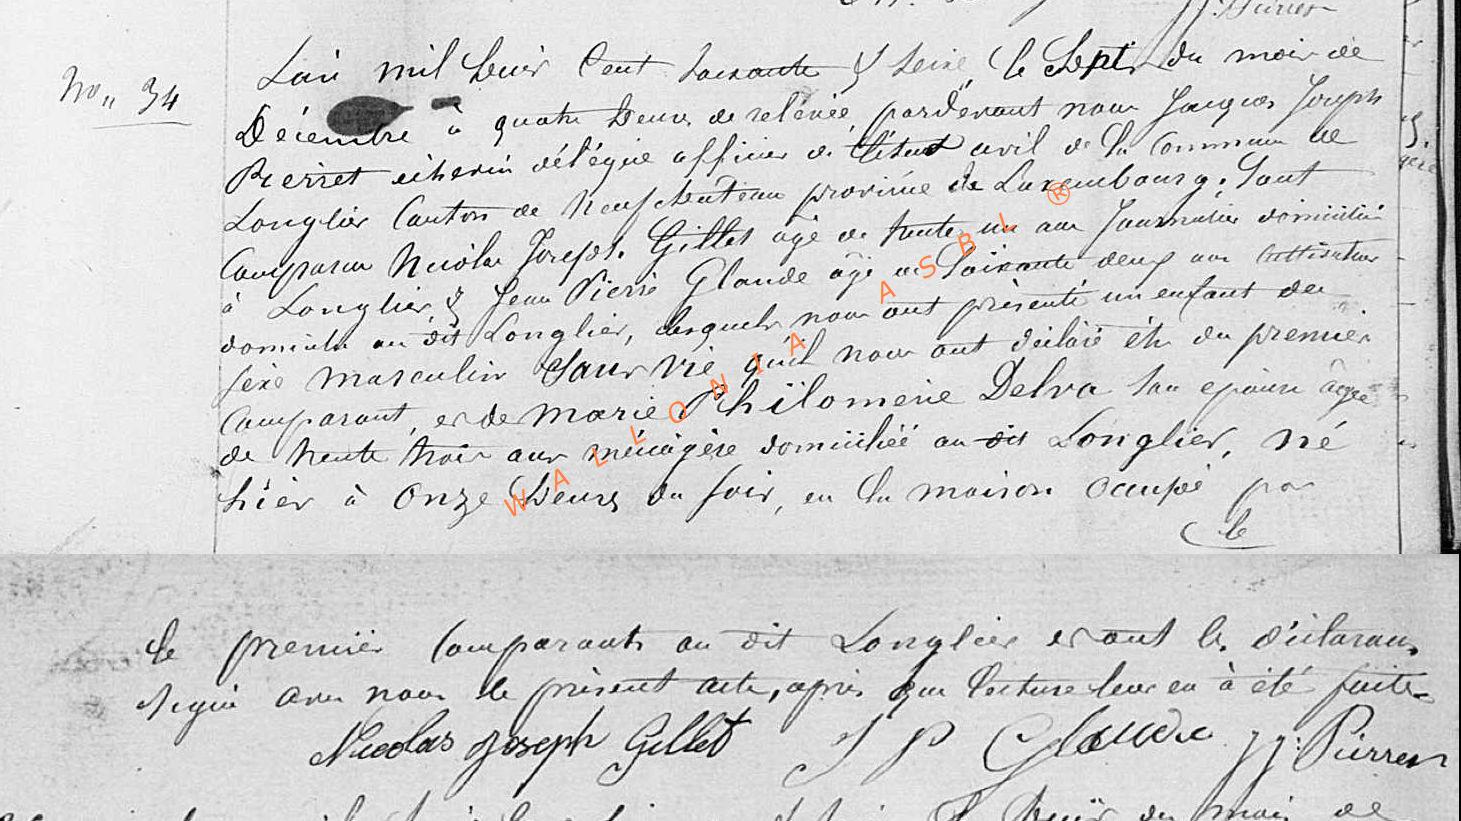 No,, 34
L'an mil huit Cent soixante & seize, le Sept du mois de
Décembre à quatre heures de relévée, pardevant nous Jacques Joseph
Pierret échevin délégué officier de l'état civil de la Commune de
Longlier Canton de Neufchâteau province de Luxembourg, Sont
Comparus Nicolas Joseph Gillet âgé de trente un ans Journalier domicilié
à Longlier, & Jean Pierre Glaude âgé de Soixante deux ans Cultivateur
domicilié au dit Longlier, lesquels nous ont présenté un enfant du
sexe masculin Sans vie qu'il nous ont déclaré être du premier
Comparant, et de Marie Philomène Delva son epouse âgée
de trente trois ans ménagère domiciliéé au dit Longlier, né
hier à onze heures du soir, en la maison occupé par
le
le premier Comparants au dit Longlier et ont les déclarans
signé avec nous le présent acte, après que lecture leur en à été faite
Nicolas Joseph Gillet J P Glaude JJ. Pierret
WALLONIA ASBL ®